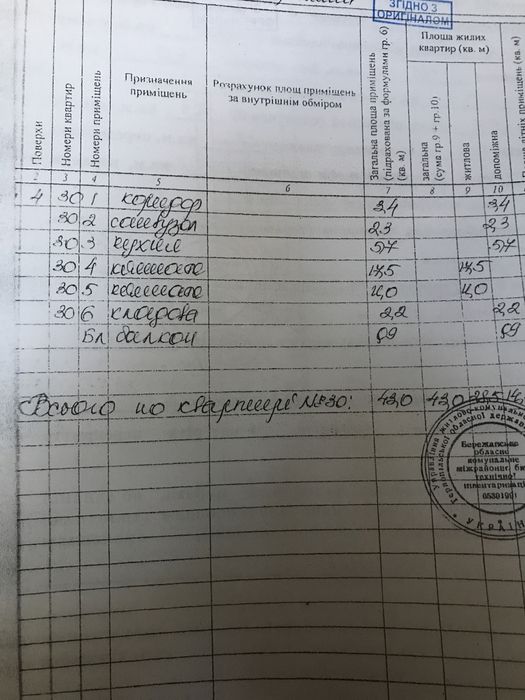 ЗГІДНО З
ОРИГІНАЛОМ
Поверхи
Номери квартир
Номери приміщень
Призначення приміщень
Розрахунок площ приміщень за внутрішнім обміром
Загальна площа приміщень (підрахована за формулами гр. 6) (кв. м)
Площа жилих квартир (кв. м)
загальна (сума гр.9 + гр.10)
житлова
допоміжна
приміщень (кв. м)
2 3 4 5 6 7 8 9 10
4 30 1 коридор 3,4 3,4
30 2 санвузол 2,3 2,3
30 3 кухня 5,7 5,7
30 4 кімната 17,5 17,5
30 5 кімната 11,0 11,0
30 6 кладова 2,2 2,2
Бл балкон 0,9 0,9
Всього по квартирі №30: 43,0 43,0 28,5
Управління житлово-комунального
Тернопільської обласної держав
Бережанське
обласне
комунальне
міжрайонне б
технічної
інвентаризац
УКРАЇН